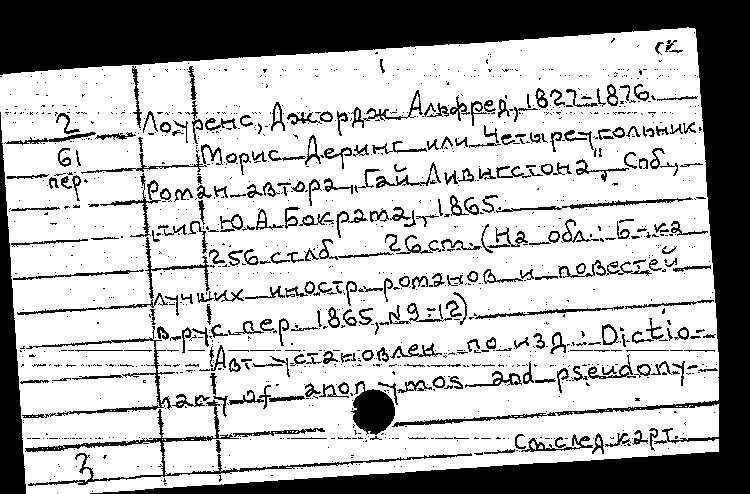 СК
2
61
пер.
Лоуренс, Джордж Альфред, 1827-1876.
Морис Деринг или Четыреугольник.
Роман автора „Гай Ливингстона". Спб.,
тип. Ю.А. Бокрама, 1865.
256 стлб. 26 cm. (На обл.: Б-ка
лучших иностр. романов и повестей
в рус. пер. 1865, №9-12)
Авт. установлен по изд.: Dictio-
nary of anonymos and pseudony-
См. след. карт.
3